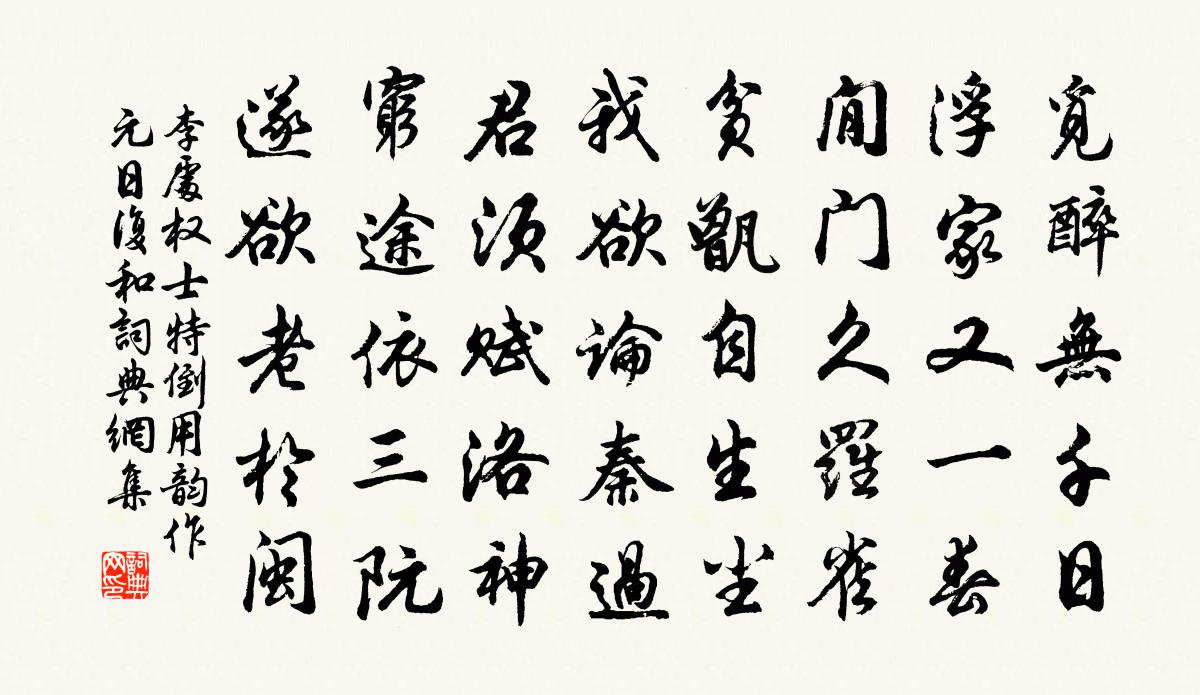 覓醉無千日
浮家又一春
閒門久羅雀
貧甑自生尘
我欲論秦過
君須賦洛神
窮途依三阮
遂欲老於閩
李處权士特倒用韵作
元日復和詞典網集
詞典网印